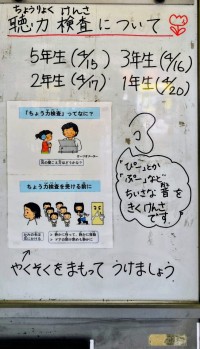 ちょうりょく けんさ
聴力検査について
5年生(4/15) 3年生(4/16)
2年生(4/17) 1年生(4/20)
「ちょう力検査」ってなに?
ちょう力検査を受ける前に
「ぴー」とか
「ぷー」など
ちいさな音を
きくけんさ
です。
やくそくをまもって うけましょう